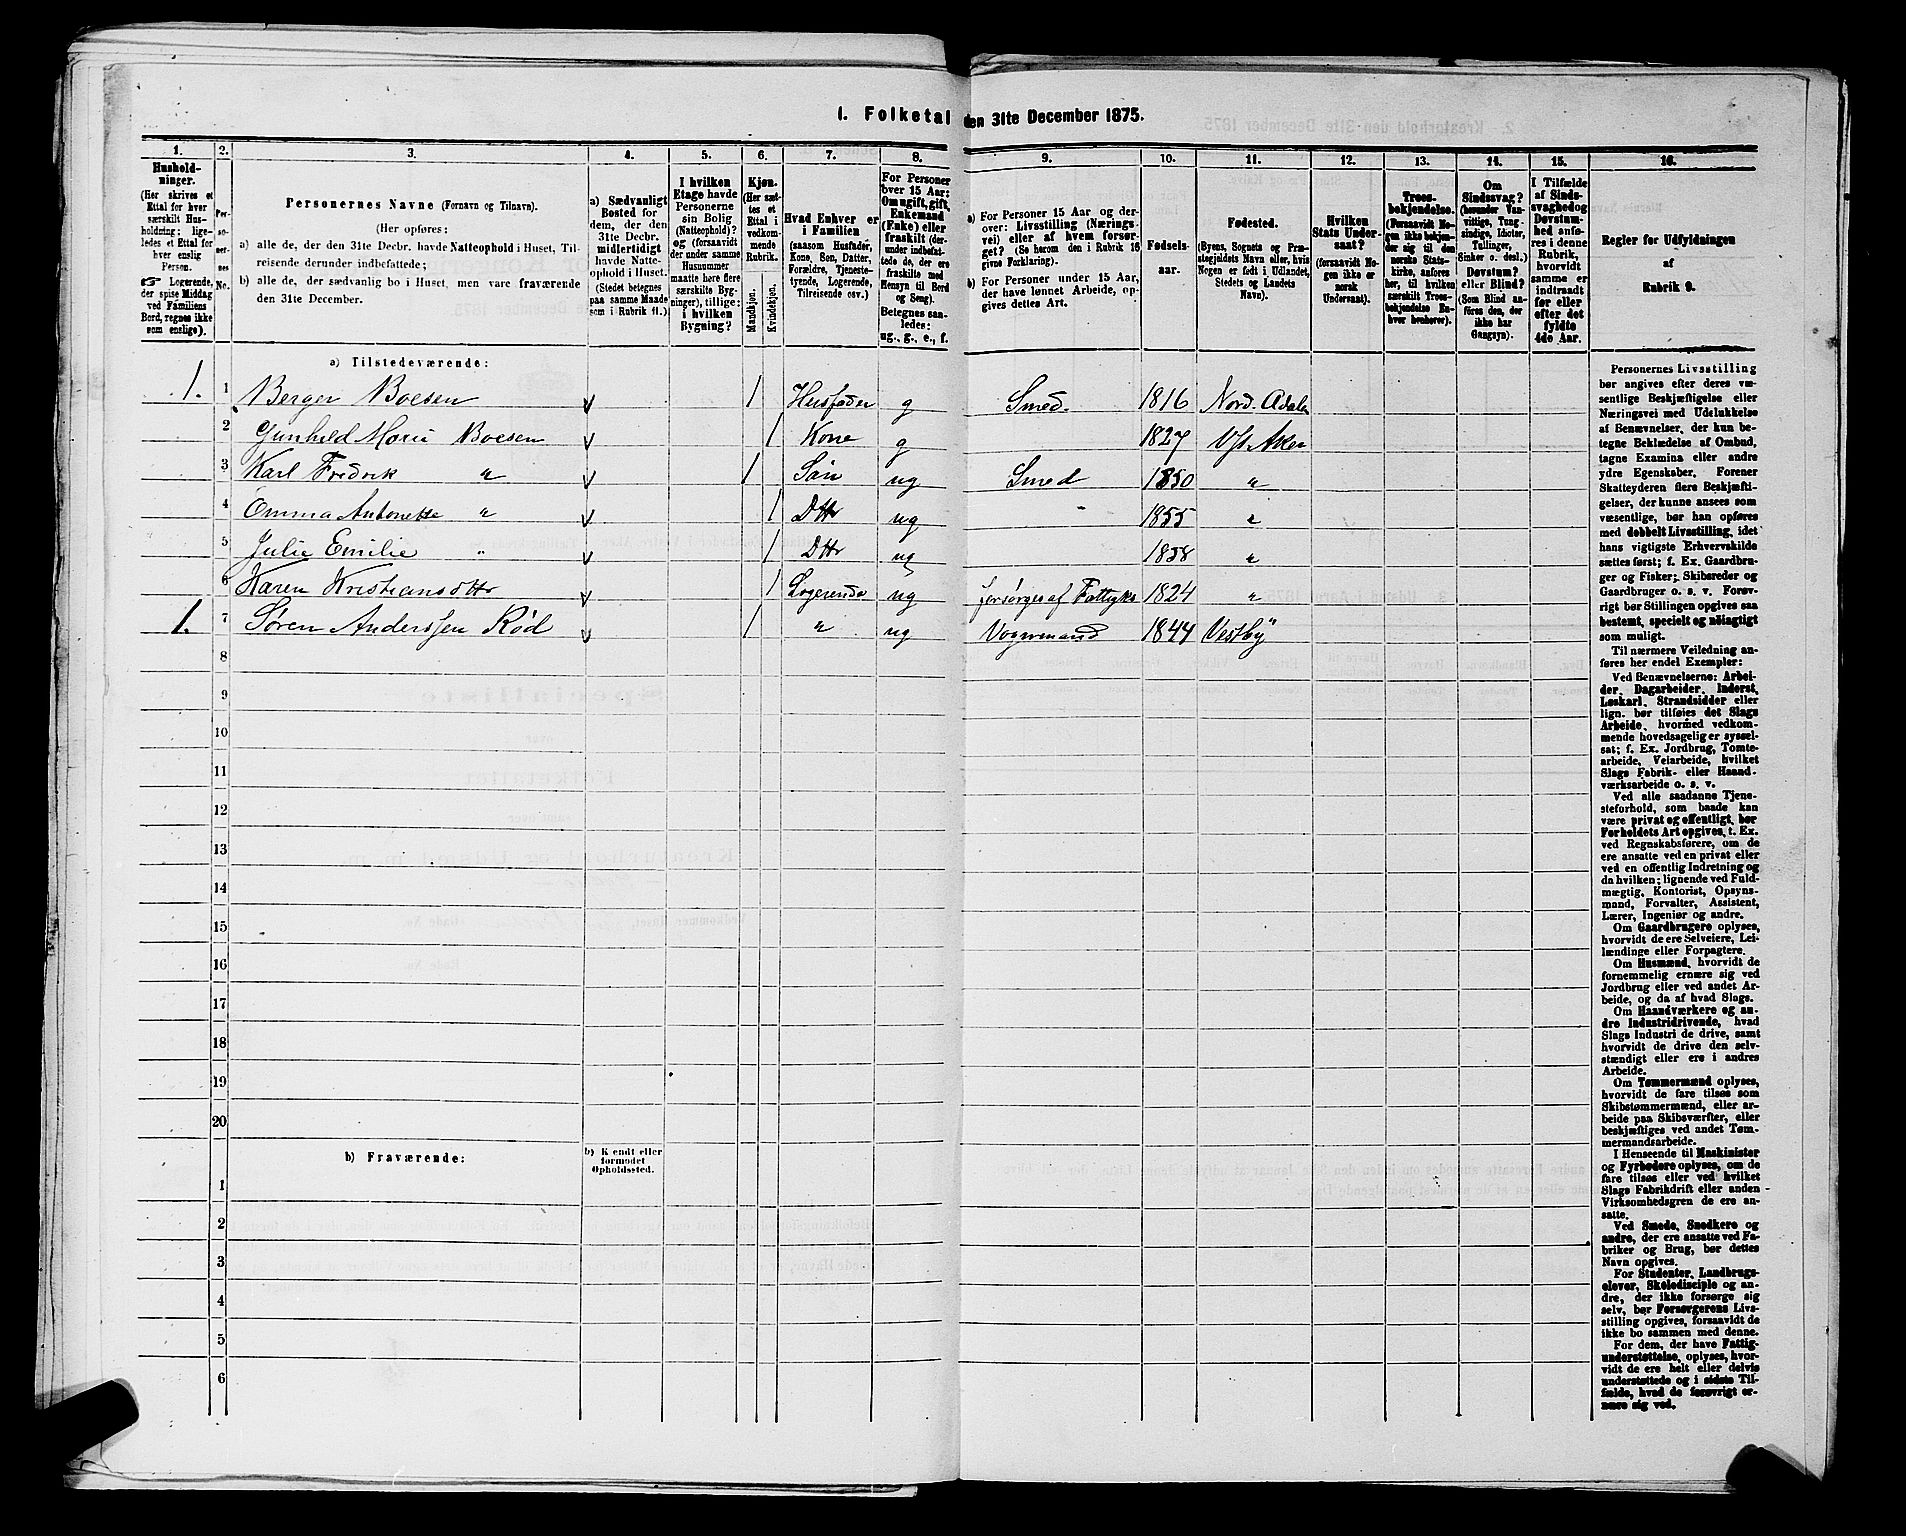 1. Folketal den 31te December 1875.
1. 2. 3. 4. 5. 6. 7. 8. 9. 10. 11. 12. 13. 14. 15. 16.
Hushold-
ninger.
(Her skrives et
Ettal for hver
særskilt Hus-
holdning; lige-
ledes et Ettal for
hver enslig
Person.
☞ Logerende,
der spise Middag
ved Familiens
Bord, regnes ikke
som enslige).
Per-
so-
ner-
nes
No.
Personernes Navne (Fornavn og Tilnavn).
(Her opføres:
a) alle de, der den 31te Decbr. havde Natteophold i Huset, Til-
reisende derunder indbefattede;
b) alle de, der sædvanlig bo i Huset, men vare fraværende
den 31te December.
a) Sædvanligt
Bosted for
dem, der den
31te Decbr.
midlertidigt
havde Natte-
ophold i Huset.
(Stedet betegnes
paa samme Maade
som i Rubrik 11.)
I hvilken
Etage havde
Personerne
sin Bolig
(Natteophold)?
og (forsaavidt
der under samme
Husnummer
maatte høre flere
særskilte Byg-
ninger), tillige:
i hvilken
Bygning?
Kjøn.
(Her sæt-
tes et
Ettal i
vedkom-
mende
Rubrik.
Mandkjøn.
Kvindekjøn.
Hvad Enhver er
i Familien
(saasom Husfader,
Kone, Søn, Datter,
Forældre, Tjeneste-
tyende, Logerende,
Tilreisende osv.)
For Personer
over 15 Aar:
Om ugift, gift,
Enkemand
(Enke) eller
fraskilt (der-
under indbefat-
tede de, der ere
fraskilte med
Hensyn til Bord
og Seng).
Betegnes saa-
ledes:
ug., g., e., f.
a) For Personer 15 Aar og der-
over: Livsstilling (Nærings-
vei) eller af hvem forsør-
get? (Se herom den i Rubrik 16
givne Forklaring).
b) For Personer under 15 Aar,
der have lønnet Arbeide, op-
gives dettes Art.
Fødsels-
aar.
Fødested.
(Byens, Sognets og Præ-
stegjeldets Navn eller, hvis
Nogen er født i Udlandet,
Stedets og Landets
Navn).
Hvilken
Stats Under-
saat?
(forsaavidt No-
gen ikke er
norsk
Undersaat).
Troes-
bekjendelse.
(Forsaavidt No-
gen ikke bekjen-
der sig til den
norske Stats-
kirke, anføres
her, til hvilken
særskilt Troes-
bekjendelse En-
hver henhører).
Om
Sindssvag?
(herunder Van-
vittige, Tung-
sindige, Idioter,
Tullinger,
Sinker o. desl.)
Døvstum?
eller Blind?
(Som Blind an-
føres den, der
ikke har
Gangsyn).
I Tilfælde
af Sinds-
svaghed og
Døvstum-
hed anfø-
res i denne
Rubrik,
hvorvidt
samme er
indtraadt
før eller
efter det
fyldte
4de Aar.
Regler for Udfyldningen
af
Rubrik 9.
a) Tilstedeværende:
1. 1 Berger Boesen 1 Husfader g Smed. 1816 Nord. Adalen
2 Gunheld Marie Boesen 1 Kone g 1827 V/s Aker
3 Karl Fredrik " 1 Søn ug Smed 1850 "
4 Omma Antonette " 1 Dttr ug " 1855 "
5 Julie Emilie " 1 Dttr ug 1858 "
6 Karen Kristiansdttr 1 Logerende ug forsørges af Fattigks 1824 "
1. 7 Søren Anderssen Rød 1 " ug Vognmand 1844 Vestby
8
9
10
11
12
13
14
15
16
17
18
19
20
b) Fraværende:
b) Kendt eller
formodet
Opholdssted.
1
2
3
4
5
6
Personernes Livsstilling
bør angives efter deres væ-
sentlige Beskjæftigelse eller
Næringsvei med Udelukkelse
af Benævnelser, der kun be-
tegne Beklædelse af Ombud,
tagne Examina eller andre
ydre Egenskaber. Forener
Skatteyderen flere Beskjæfti-
gelser, der kunne ansees som
væsentlige, bør han opføres
med dobbelt Livsstilling, idet
hans vigtigste Erhvervskilde
sættes først; f. Ex. Gaardbru-
ger og Fisker; Skibsreder og
Gaardbruger o. s. v. Forøv-
rigt bør Stillingen opgives saa
bestemt, specielt og nøiagtigt
som muligt.
Til nærmere Veiledning an-
føres her endel Exempler:
Ved Benævnelserne: Arbei-
der, Dagarbeider, Inderst,
Løskarl, Strandsidder eller
lign. bør tilføies det Slags
Arbeide, hvormed vedkom-
mende hovedsagelig er syssel-
sat; f. Ex. Jordbrug, Tomte-
arbeide, Veiarbeide, hvilket
Slags Fabrik- eller Haand-
værksarbeide o. s. v.
Ved alle saadanne Tjene-
steforhold, som baade kan
være privat og offentligt, bør
Forholdets Art opgives, t. Ex.
ved Regnskabsførere, om de
ere ansatte ved en privat eller
ved en offentlig Indretning og
da hvilken; lignende ved Fuld-
mægtig, Kontorist, Opsyns-
mand, Forvalter, Assistent,
Lærer, Ingeniør og andre.
Om Gaardbrugere oplyses,
hvorvidt de ere Selveiere, Lei-
lændinge eller Forpagtere.
Om Husmænd, hvorvidt de
fornemmelig ernære sig ved
Jordbrug eller ved andet Ar-
beide, og da af hvad Slags.
Om Haandværkere og an-
dre Industridrivende, hvad
Slags Industri de drive, samt
hvorvidt de drive den selv-
stændigt eller ere i andres
Arbeide.
Om Tømmermænd oplyses,
hvorvidt de fare tilsøs som
Skibstømmermænd, eller ar-
beide paa Skibsværfter, eller
beskjæftiges ved andet Tøm-
mermandsarbeide.
I Henseende til Maskinister
og Fyrbødere oplyses, om de
fare tilsøs eller ved hvilket
Slags Fabrikdrift eller anden
Virksomhedsgren de ere an-
satte.
Ved Smede, Snedkere og
andre, der ere ansatte ved Fa-
briker og Brug, bør dettes
Navn opgives.
For Studenter, Landbrugs-
elever, Skoledisciple og an-
dre, der ikke forsørge sig
selv, bør Forsørgerens Livs-
stilling opgives, forsaavidt de
ikke bo sammen med denne.
For dem, der have Fattig-
understøttelse, oplyses, hvor-
vidt de ere helt eller delvis
understøttede og i sidste Til-
fælde, hvad de forøvrigt er-
nære sig ved.